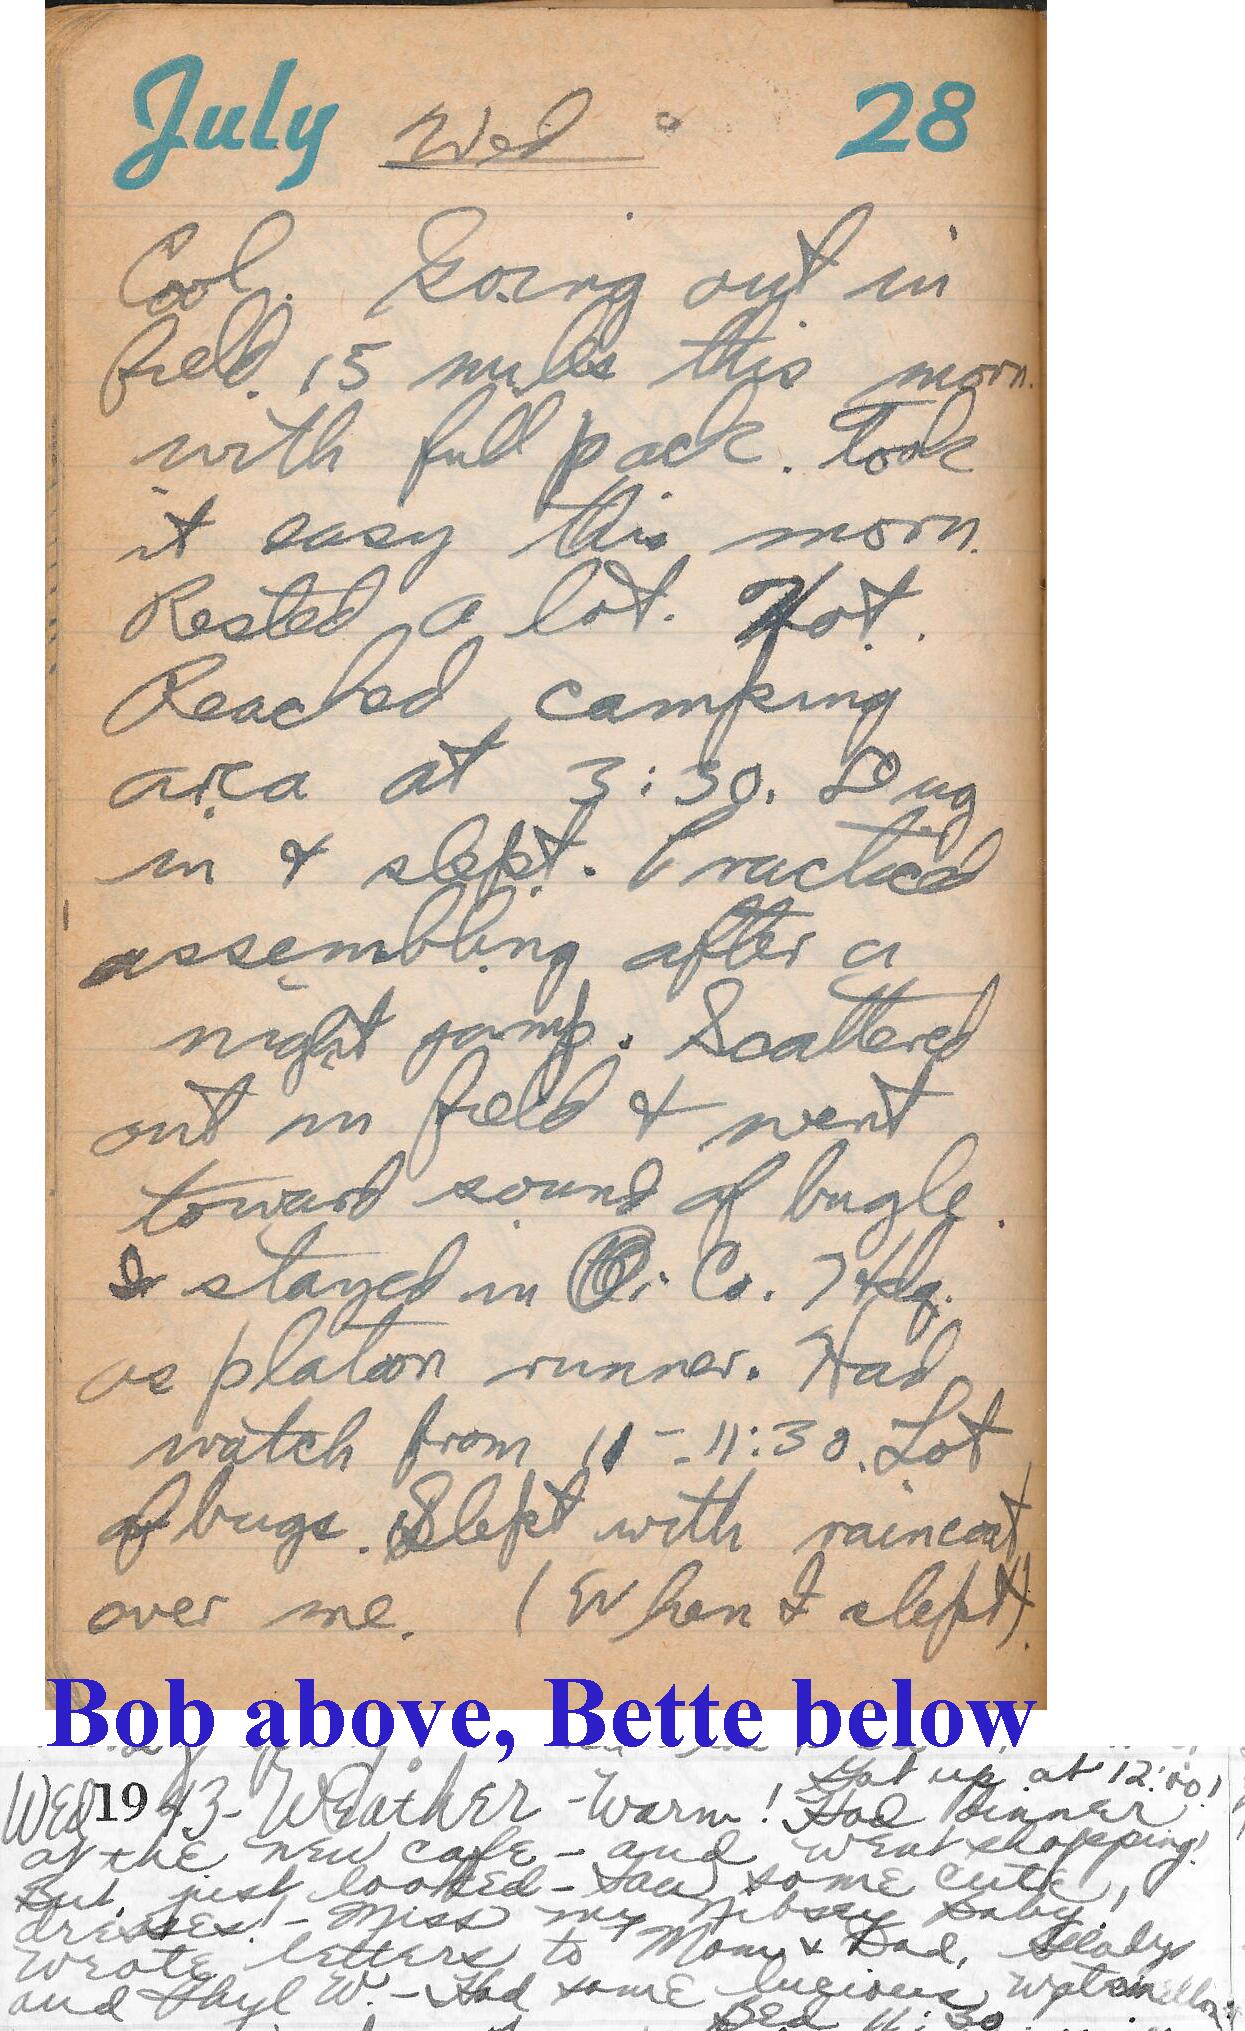 July Wed 28
Cool. Going out in
field. 15 miles this morn.
with full pack. Took
it easy this morn.
Rested a lot. Hot.
Reached camping
area at 3:30. Dug
in & slept. Practiced
assembling after a
night jump. Scattered
out in field & went
toward sound of bugle.
I stayed in Co. Hdq.
as platoon runner. Had
watch from 11 - 11:30. Lot
of bugs. Slept with raincoat
over me. (When I slept).
Bob above, Bette below
Got up at 12:00!
WED 1943 - WEATHER - Warm! Had dinner
at the new cafe - and went shopping!
But, just looked - Saw some cute,
dresses! - Miss my Baby.
Wrote letters to Mom & Dad, Gladys
and W. - Had some lucious watermellon.
Bed 11:30